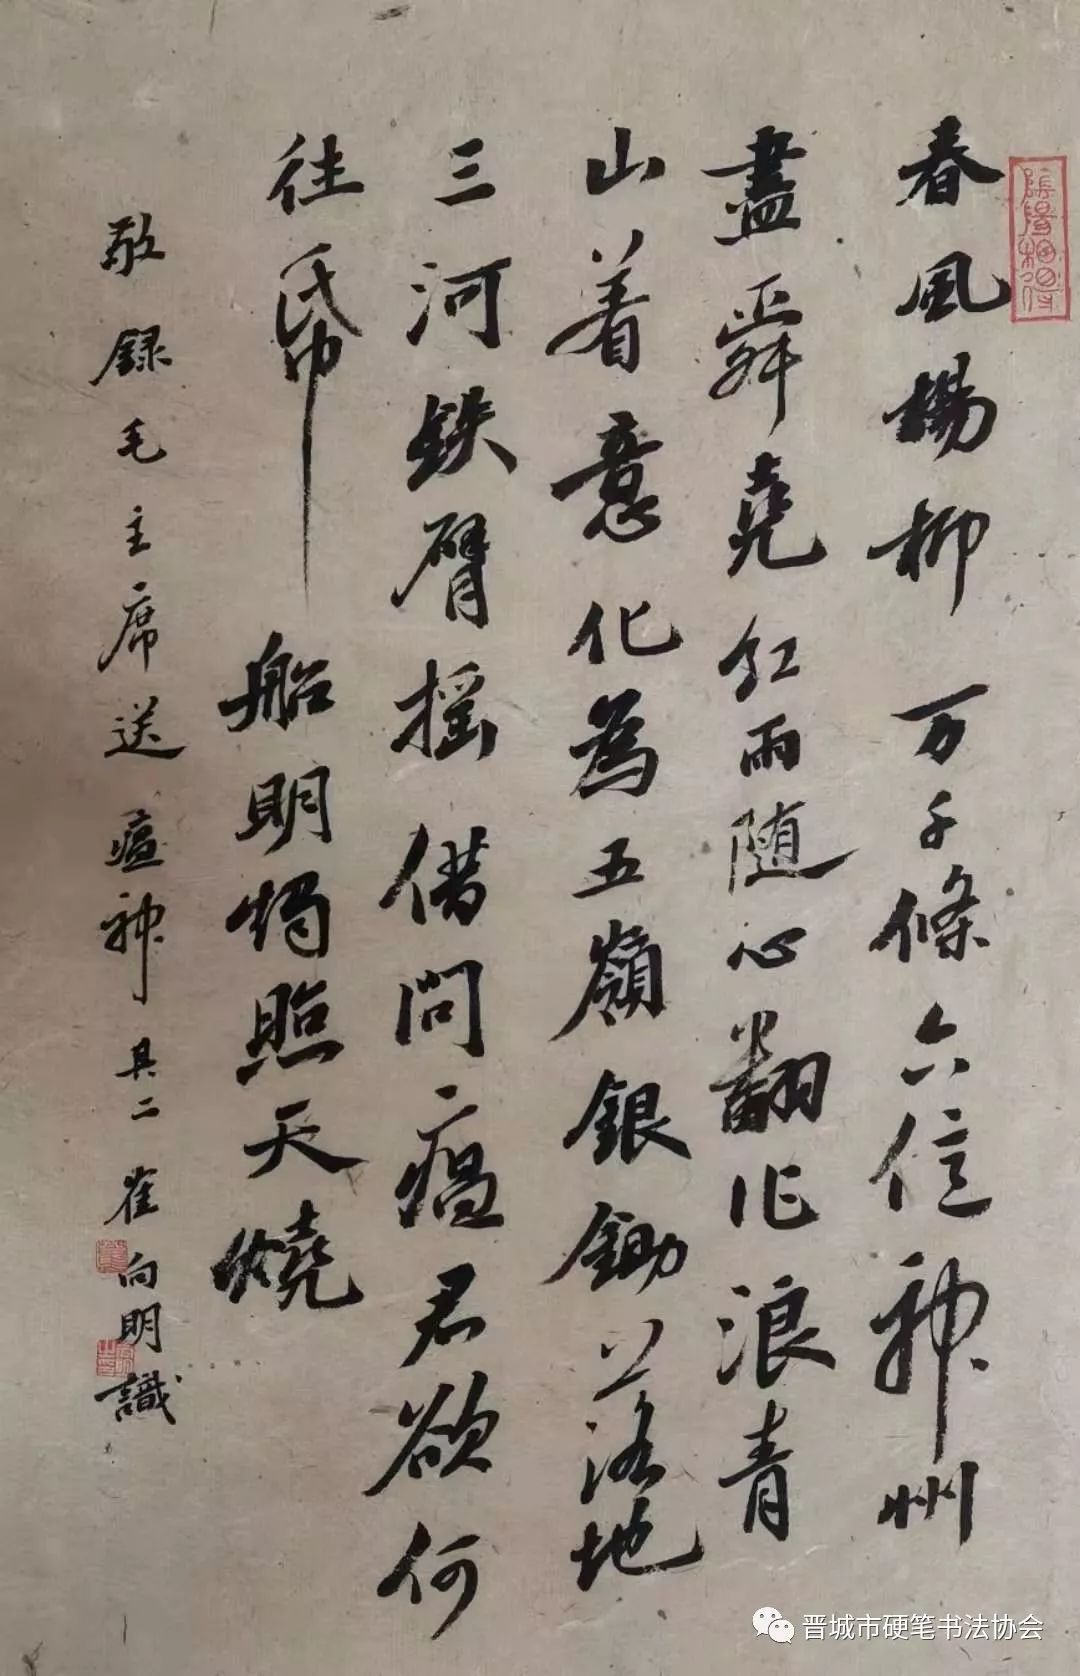 春風楊柳万千條六億神州
盡舜堯紅雨随心翻作浪青
山着意化為五嶺銀鋤落地
三河鉄臂摇借問瘟君欲何
往帋船明燭照天燒
敬録毛主席送瘟神其二崔向明識
晋城市硬笔书法协会